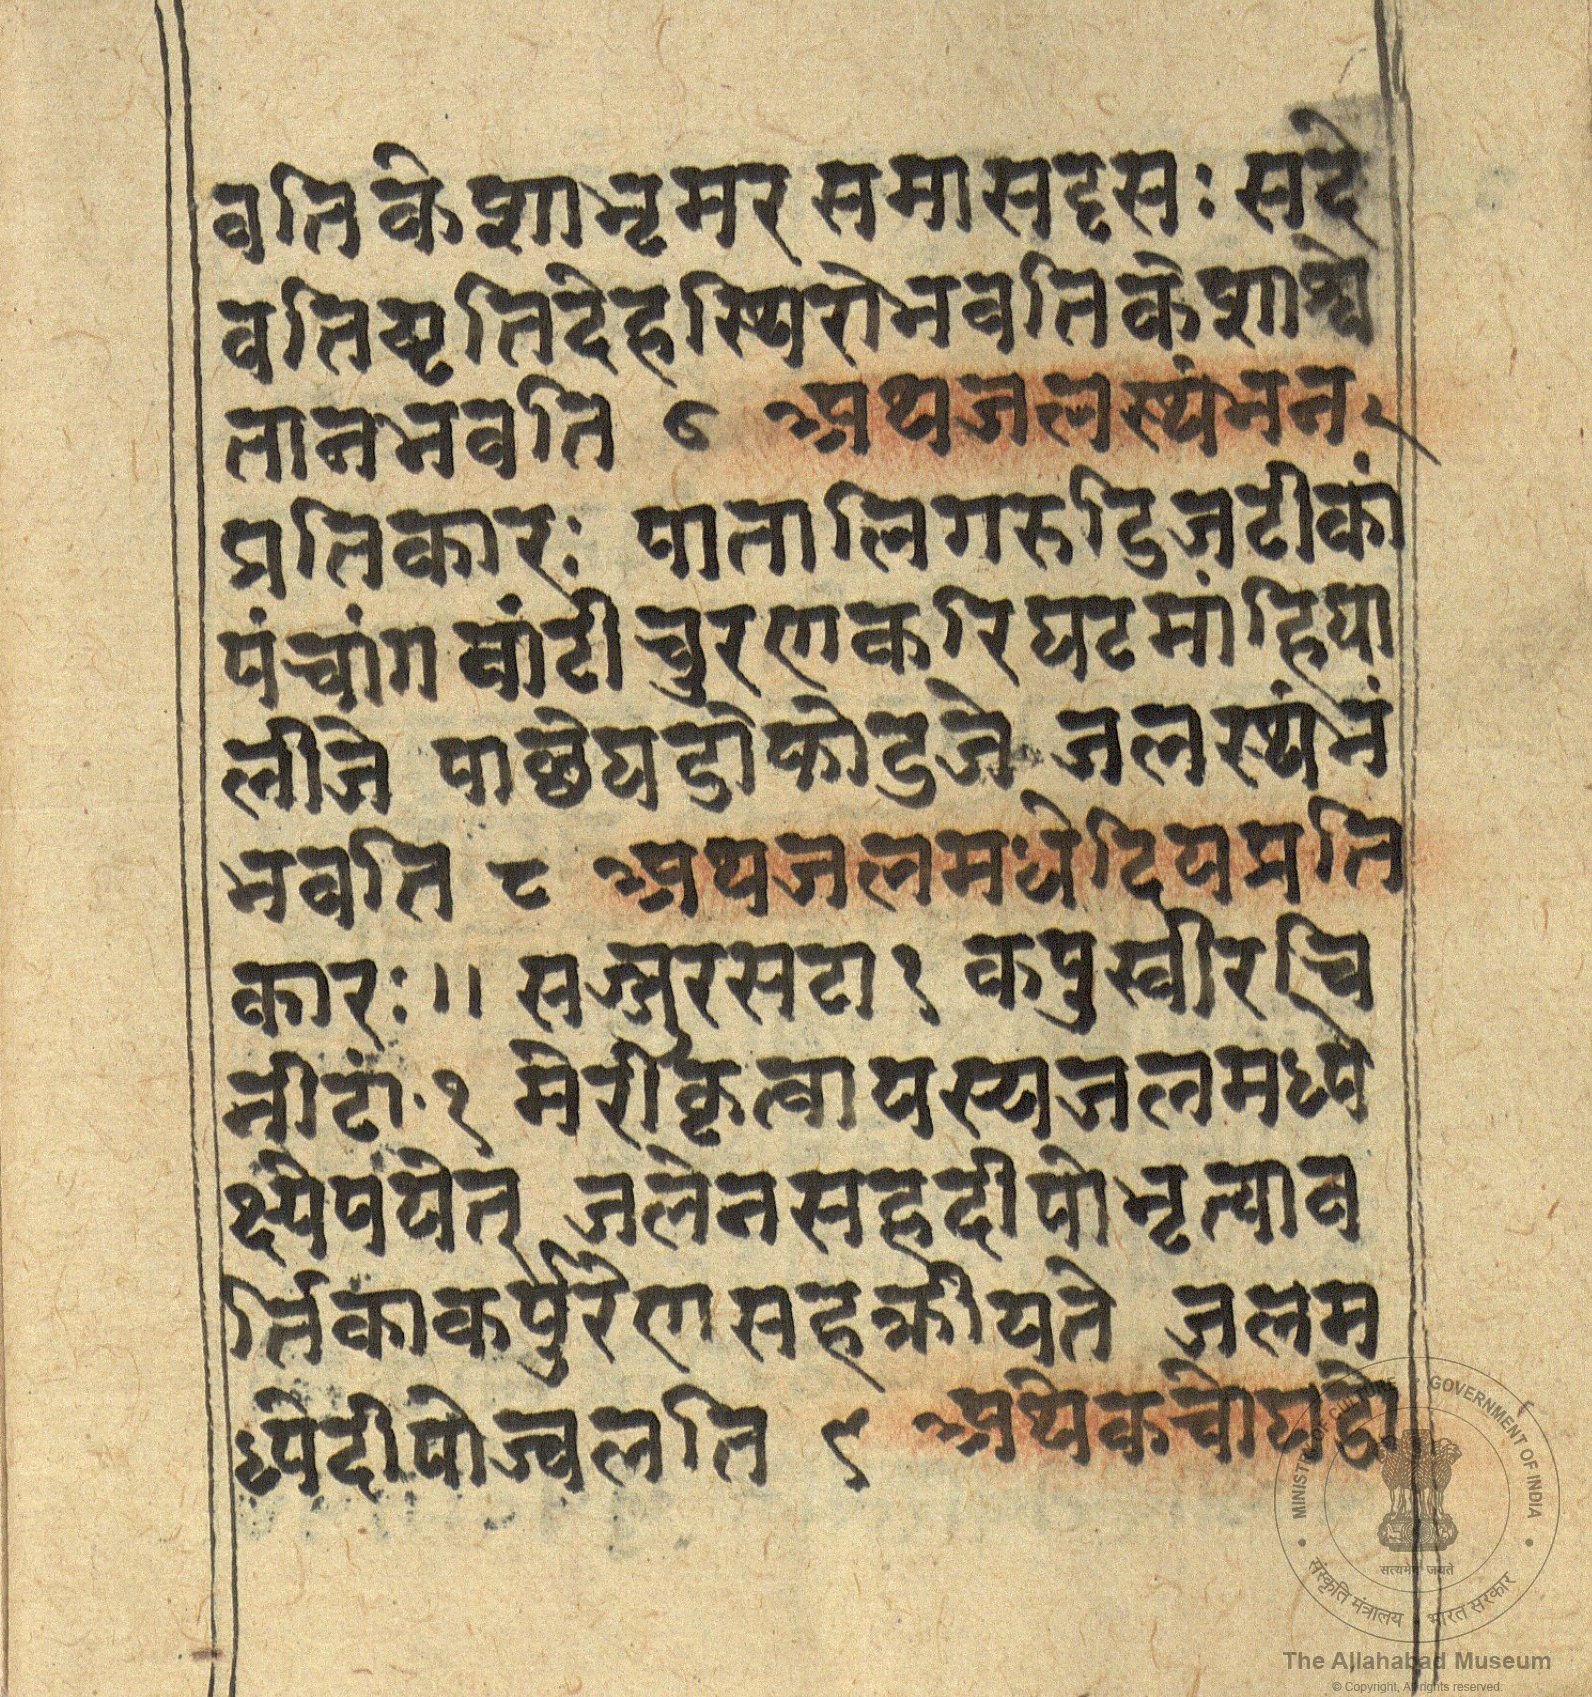 वतिकेशाभृमर समासदृसः सदे
वतिमृतिदेहस्थिरोभवतिकेशाश्वे
तानभवति ७ अथजलस्थंभन
प्रतिकारः पातालिगरुडिजटीकां
पंचांग बांटी चुरणकरिघटमांहिघा
लीजे पाछेघडोफोडुजे जलस्थंभं
भवति ८ अथजलमध्येदियप्रति
कारः॥ सज्जुरसटा१ कपुरबीरचि
नीटां·१ मेरीकृत्वायस्यजलमध्ये
क्ष्येपयेत् जलेनसहदीपोभृत्वाव
र्तिकाकर्पुरेणसहक्रीयते जलम
ध्येदीपोज्वलति ९ अथेकचोघडे
MINISTRY OF CULTURE GOVERNMENT OF INDIA
सत्यमेव जयते
संस्कृति मंत्रालय भारत सरकार
The Allahabad Museum
© Copyright, All rights reserved.